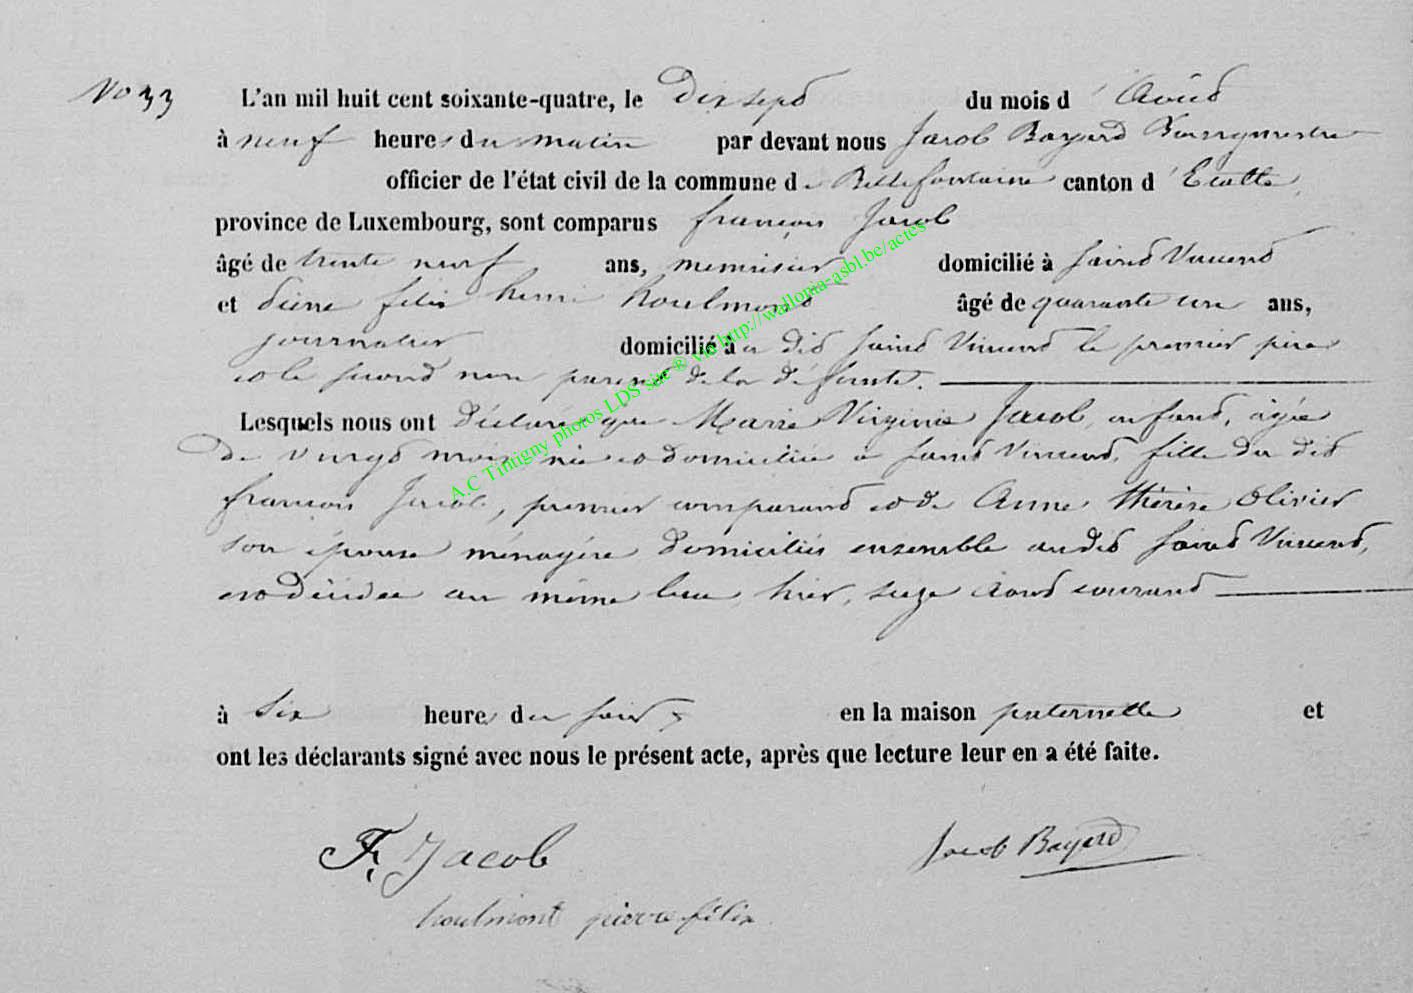 No 33 L'an mil huit cent soixante-quatre, le Dix sept du mois d'Août
à neuf heures du matin par devant nous Jacob Bayard Bourgmestre
officier de l'état civil de la commune de Bellefontaine canton d'Etalle,
province de Luxembourg, sont comparus françois Jacob
âgé de trente neuf ans, menuisier domicilié à saint Vincent
et pierre félix henri houlmont âgé de quarante un ans,
journalier domicilié à u dit saint Vincent le premier père
et le second non parent de la défunte.
Lesquels nous ont déclaré que Marie Virginie Jacob, enfant, âgée
De vingt mois née et domiciliée à saint Vincent, fille du dit
françois Jacob, premier comparant et de Anne thérèse Olivier
son épouse ménagère domiciliés ensemble au dit saint Vincent,
est décédée au même lieu hier, seize Aout courant
à Six heures du soir en la maison paternelle et
ont les déclarants signé avec nous le présent acte, après que lecture leur en a été faite.
F. Jacob Jacob Bayard
houlmont pierre félix
A.C Tintigny photos LDS site ® via http://wallonia-asbl.be/actes